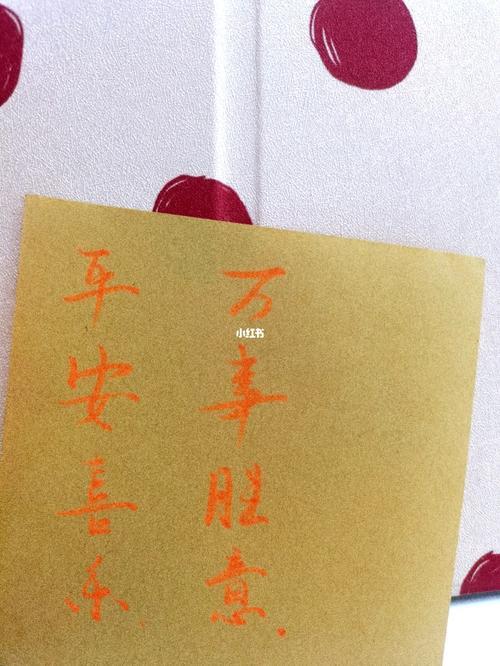 平安喜乐
万事胜意.
小红书